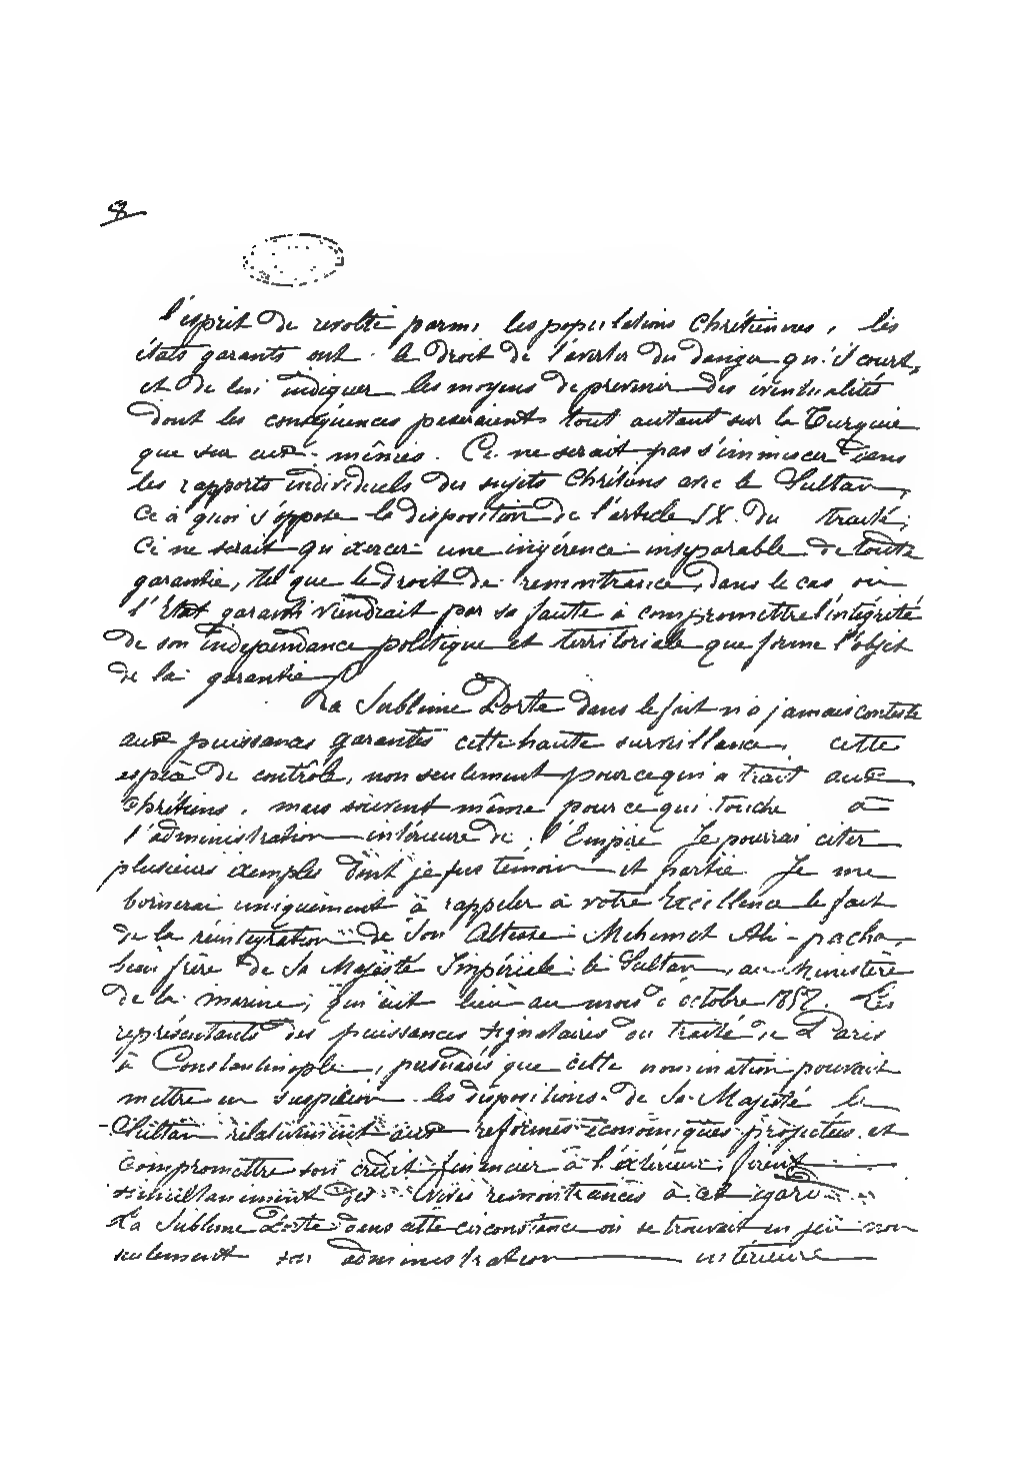 8
l'esprit de revolte parmi les populations Chrétiennes, les
états garants ont le droit de l'avertir du danger qu'il court,
et de lui indiquer les moyens de prevenir des éventualités
dont les conséquences peseraient tout autant sur la Turquie
que sur eux-mêmes. Ce ne serait pas s'immiscer dans
les rapports individuels des sujets Chrétiens avec le Sultan,
ce à quoi s'oppose la disposition de l'article IX. du traité;
Ce ne serait qu'exercer une ingérence inséparable de toute
garantie, tel que le droit de remontrance, dans le cas où
l'État garanti viendrait par sa faute à compromettre l'intégrité
de son indépendance politique et territoriale que forme l'objet
de la garantie.
La Sublime Porte dans le fait n'a jamais contesté
aux puissances garantes cette haute surveillance, cette
espèce de contrôle, non seulement pour ce qui a trait aux
Chrétiens, mais souvent même pour ce qui touche à
l'administration intérieure de l'Empire. Je pourrai citer
plusieurs exemples dont je fus temoin et partie. Je me
bornerai uniquement à rappeler à votre Excellence le fait
de la réintegration de Son Altesse Mehemet Ali-pacha,
beau frère de Sa Majesté Impériale le Sultan, au Ministère
de la marine, qui eut lieu au mois d'octobre 1857. Les
représentants des puissances signataires du traité de Paris
à Constantinople, persuadés que cette nomination pouvait
mettre en suspicion les dispositions de Sa Majesté le
Sultan relativement aux reformes économiques projetées et
compromettre son crédit financier à l'extérieur, firent
simultanement des vives remontrances à cet égard
La Sublime Porte dans cette circonstance où se trouvait en jeu non
seulement son administration intérieure